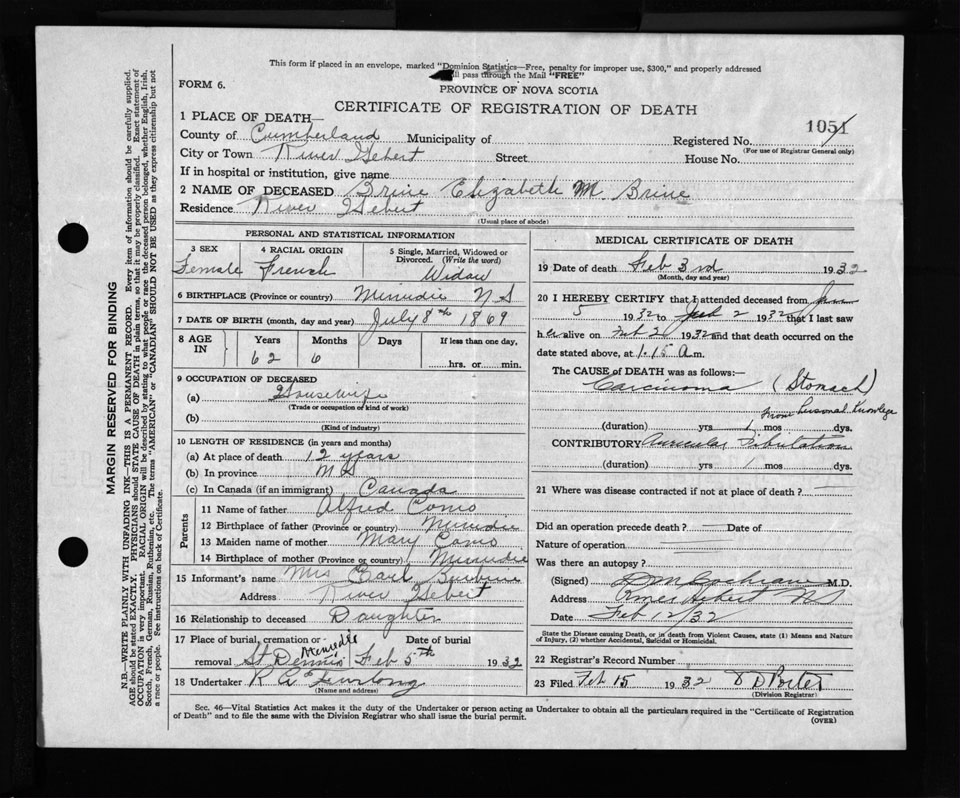 This form if placed in an envelope, marked "Dominion Statistics—Free, penalty for improper use, $300," and properly addressed
ll pass through the Mail "FREE"
FORM 6.
PROVINCE OF NOVA SCOTIA
CERTIFICATE OF REGISTRATION OF DEATH
1051
1 PLACE OF DEATH—
County of Cumberland Municipality of Registered No.
(For use of Registrar General only)
City or Town River Hebert Street House No.
If in hospital or institution, give name
2 NAME OF DECEASED Brine Elizabeth M. Brine
Residence River Hebert
(Usual place of abode)
PERSONAL AND STATISTICAL INFORMATION
3 SEX 4 RACIAL ORIGIN 5 Single, Married, Widowed or Divorced. (Write the word)
Female French Widow
6 BIRTHPLACE (Province or country) Minudie N S
7 DATE OF BIRTH (month, day and year) July 8th 1869
8 AGE IN Years Months Days If less than one day,
62 6 hrs. or min.
9 OCCUPATION OF DECEASED
(a) Housewife
(Trade or occupation or kind of work)
(b)
(Kind of industry)
10 LENGTH OF RESIDENCE (in years and months)
(a) At place of death 12 years
(b) In province N S
(c) In Canada (if an immigrant) Canada
Parents
11 Name of father Alfred Como
12 Birthplace of father (Province or country) Minudie
13 Maiden name of mother Mary Como
14 Birthplace of mother (Province or country) Minudie
15 Informant's name Mrs Earl
Address River Hebert
16 Relationship to deceased Daughter
17 Place of burial, cremation or removal Date of burial
St. Dennis Minudie Feb 5th 1932
18 Undertaker R C Furlong
(Name and address)
MEDICAL CERTIFICATE OF DEATH
19 Date of death Feb 3rd 1932
(Month, day and year)
20 I HEREBY CERTIFY that I attended deceased from Jan
5 1932 to Feb 2 1932 that I last saw
her alive on Feb 2 1932 and that death occurred on the
date stated above, at 1.15 a m.
The CAUSE of DEATH was as follows:
Carcinoma (Stomach)
from Personal Knowledge
(duration) yrs 1 mos dys.
CONTRIBUTORY Auricular Fibulation
(duration) yrs 1 mos dys.
21 Where was disease contracted if not at place of death?
Did an operation precede death? — Date of
Nature of operation
Was there an autopsy?
(Signed) D M Cochrane M.D.
Address River Hebert NS
Date Feb 12/32
State the Disease causing Death, or in death from Violent Causes, state (1) Means and Nature
of Injury, (2) whether Accidental, Suicidal or Homicidal.
22 Registrar's Record Number
23 Filed Feb 15 1932 D D Porter
(Division Registrar)
Sec. 46—Vital Statistics Act makes it the duty of the Undertaker or person acting as Undertaker to obtain all the particulars required in the "Certificate of Registration
of Death" and to file the same with the Division Registrar who shall issue the burial permit.
(OVER)
MARGIN RESERVED FOR BINDING
N.B.—WRITE PLAINLY WITH UNFADING INK—THIS IS A PERMANENT RECORD. Every item of information should be carefully supplied.
AGE should be stated EXACTLY. PHYSICIANS should STATE CAUSE OF DEATH in plain terms, so that it may be properly classified. Exact statement of
OCCUPATION is very important. RACIAL ORIGIN will be described by stating to what people or race the deceased person belonged, whether English, Irish,
Scotch, French, German, Russian, Ruthenian, etc. The terms "AMERICAN" or "CANADIAN" SHOULD NOT BE USED as they express citizenship but not
a race or people. See instructions on back of Certificate.